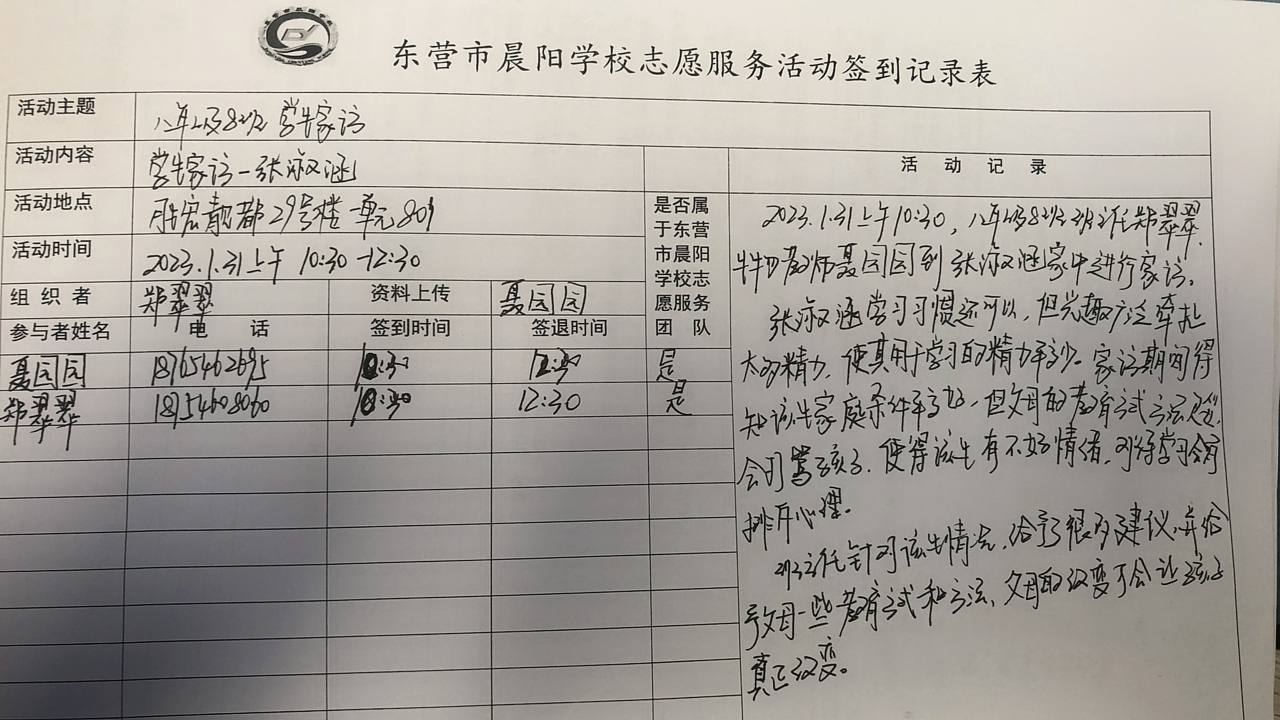 东营市晨阳学校志愿服务活动签到记录表
活动主题 八年级8班 学生家访
活动内容 学生家访-张淑涵
活动地点 29号楼一单元801
活动时间 2023.1.31上午 10:30-12:30
组织者 郑翠翠 资料上传 聂园园
参与者姓名 电话 签到时间 签退时间
是否属
于东营
市晨阳
学校志
愿服务
团队
聂园园 18765462695 10:30 12:30 是
郑翠翠 10:30 12:30 是
活动记录
2023.1.31上午10:30,八年级8班班主任郑翠翠
教师聂园园到张淑涵家中进行家访。
张淑涵学习习惯还可以,但兴趣广泛牵扯
太多精力,使其用于学习的精力不多。家访期间得
知该生家庭条件不好,但父母的教育方式方法
会打骂孩子,使得该生有不好情绪,对待学习会有
排斥心理。
班主任针对该生情况,给予了很多建议,并给
予父母一些教育方式和方法,父母的改变才会让孩子
真正改变。